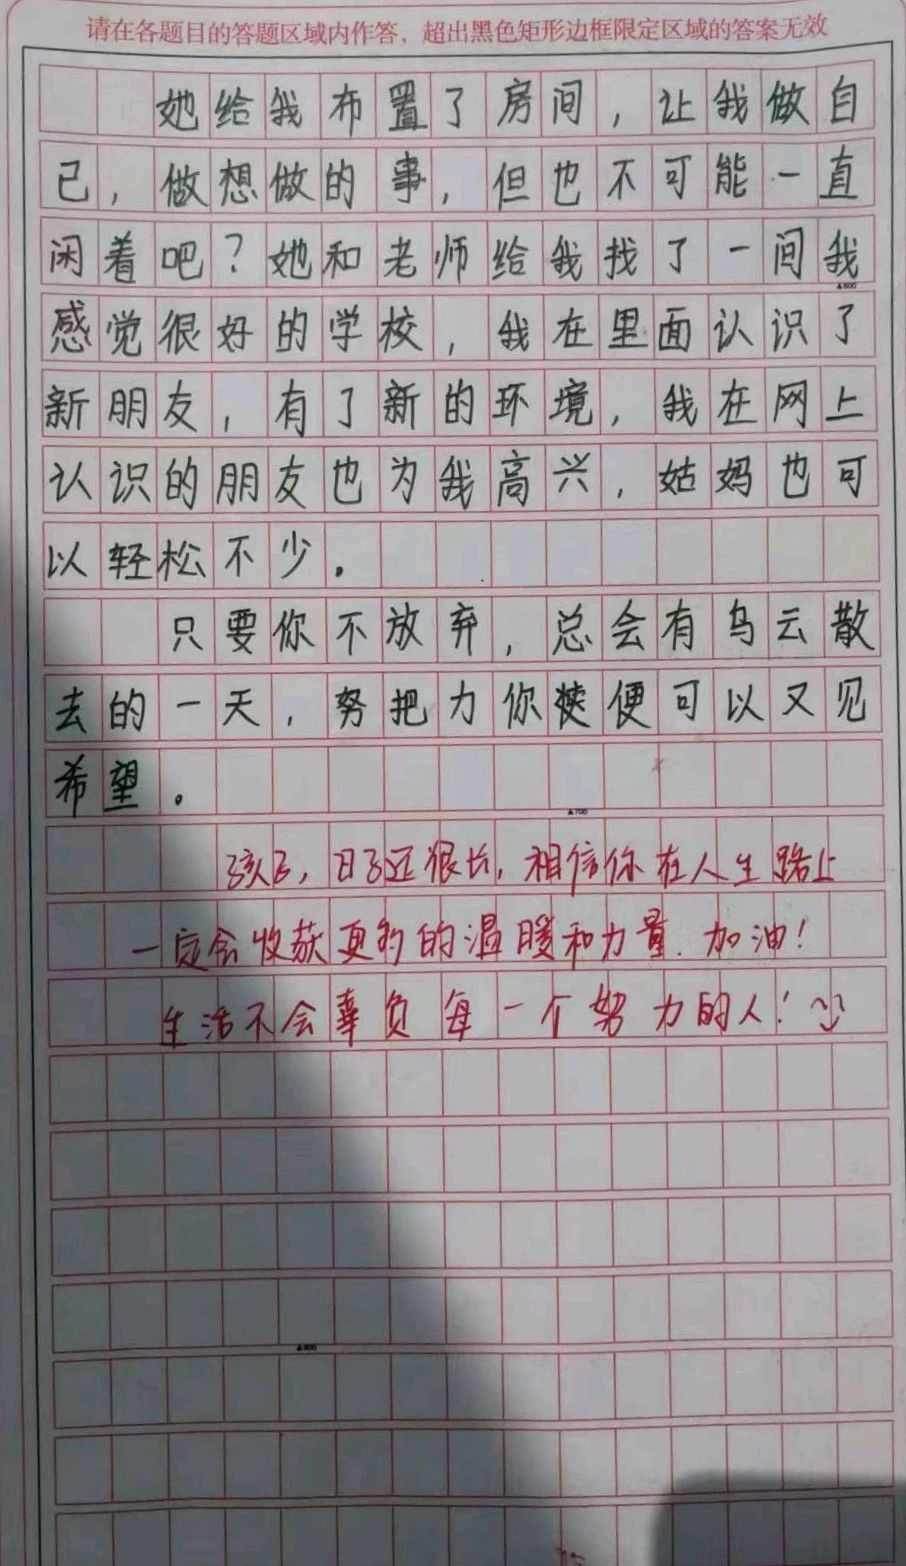 请在各题目的答题区域内作答，超出黑色矩形边框限定区域的答案无效
她给我布置了房间，让我做自
己，做想做的事，但也不可能一直
闲着吧？她和老师给我找了一间我
▲600
感觉很好的学校，我在里面认识了
新朋友，有了新的环境，我在网上
认识的朋友也为我高兴，姑妈也可
以轻松不少。
只要你不放弃，总会有乌云散
去的一天，努把力你便可以又见
希望。
▲700
孩子，日子还很长，相信你在人生路上
一定会收获更多的温暖和力量.加油！
生活不会辜负每一个努力的人！
▲800